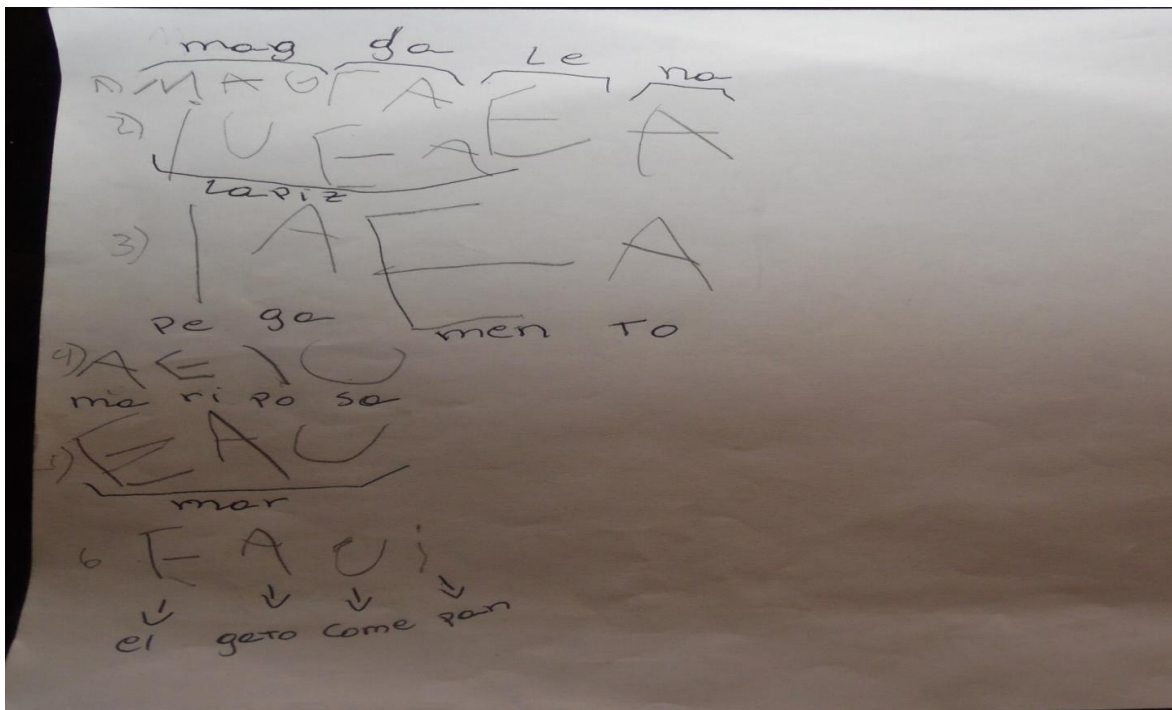 mag ga Le na
1) M A G F A E A
2) i U E A
Lapiz
3) I A E A
pe ga men TO
4) A E I U
ma ri po sa
5) E A U
mar
6 E A U i
el gato come pan